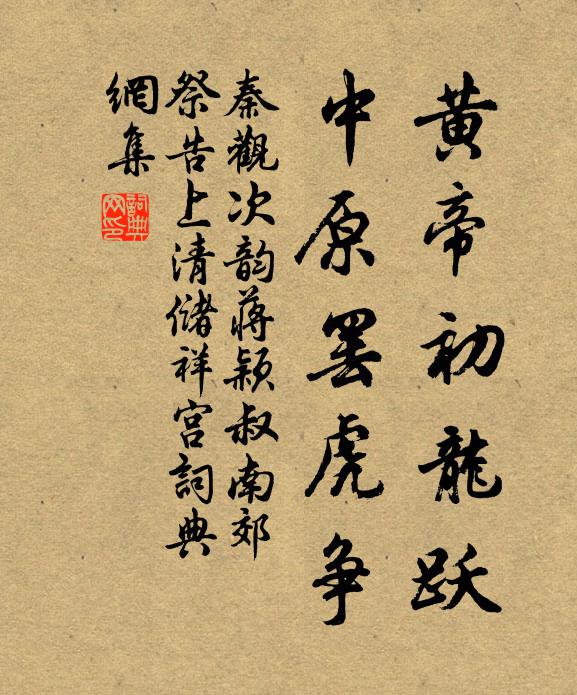 黄帝初龍跃
中原罢虎争
秦觀次韵蒋颖叔南郊
祭告上清儲祥宫詞典
網集
詞典
网印